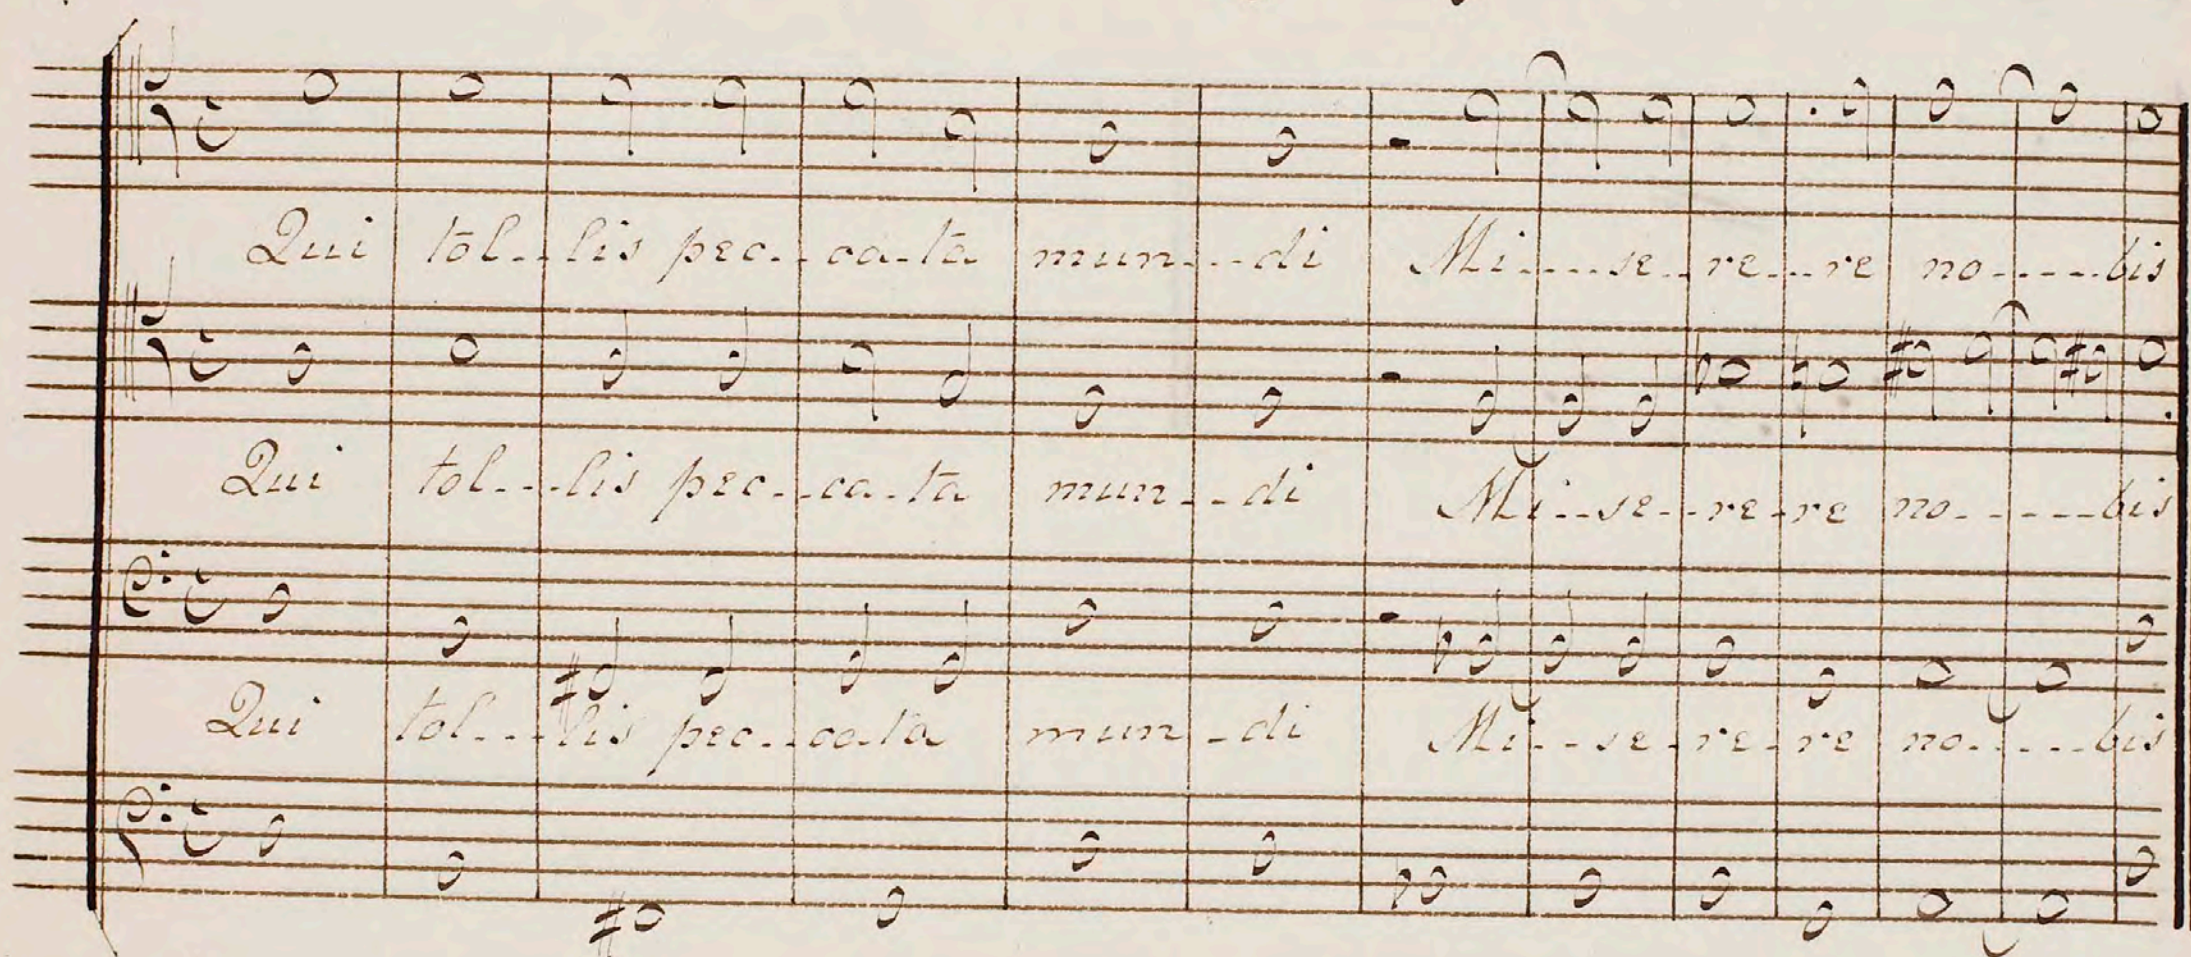 Qui tol...lis pec..ca-ta mun...di Mi....se..re...re no.....bis
Qui tol...lis pec..ca-ta mun...di Mi...se..re-re no......bis
Qui tol...lis pec..ca-ta mun..di Mi...se-re-re no.....bis